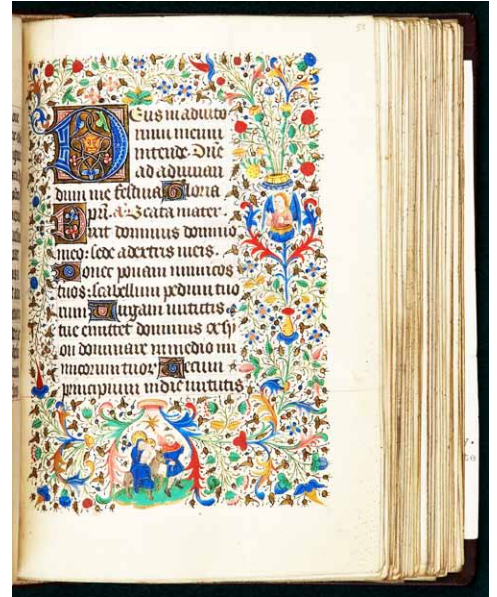 Deus in adiuto
rium meum
intende. Dne
ad adiuvan
dum me festina Gloria
pri. a. Beata mater.
Dixit dominus domino
meo: sede a dextris meis.
Donec ponam inimicos
tuos: scabellum pedum tuo
rum Virgam virtutis
tue emittet dominus ex sy
on dominare in medio ini
micorum tuor. Tecum
principium in die virtutis